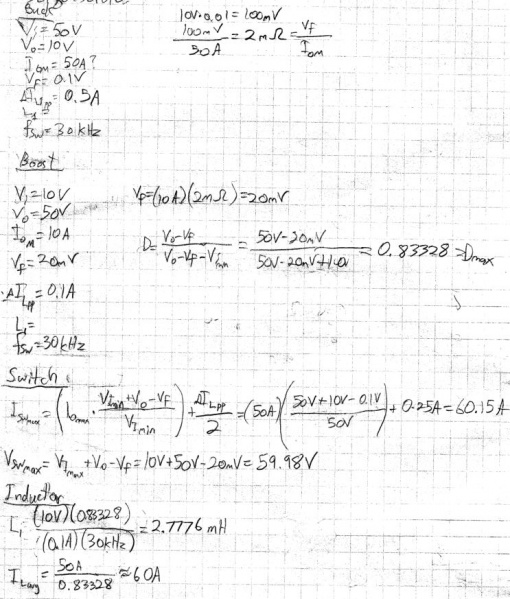 Buck
V_i = 50V
V_o = 10V
I_om = 50A?
V_F = 0.1V
ΔI_Lpp = 0.5A
L_1 =
f_sw = 30 kHz
10V·0.01 = 100mV
100mV/50A = 2mΩ = V_F/I_om
Boost
V_i = 10V
V_o = 50V
I_om = 10A
V_F = 20mV
ΔI_Lpp = 0.1A
L_1 =
f_sw = 30 kHz
V_F = (10A)(2mΩ) = 20mV
D = (V_o - V_F)/(V_o - V_F - V_Imin) = (50V - 20mV)/(50V - 20mV + 10V) = 0.83328 = D_max
Switch
I_swmax = (I_omax · (V_Imin + V_o - V_F)/V_Imin) + ΔI_Lpp/2 = (50A)((50V + 10V - 0.1V)/50V) + 0.25A = 60.15A
V_swmax = V_Imax + V_o - V_F = 10V + 50V - 20mV = 59.98V
Inductor
L_1 = (10V)(0.83328)/(0.1A)(30kHz) = 2.7776 mH
I_Lavg = 50A/0.83328 ≈ 60A